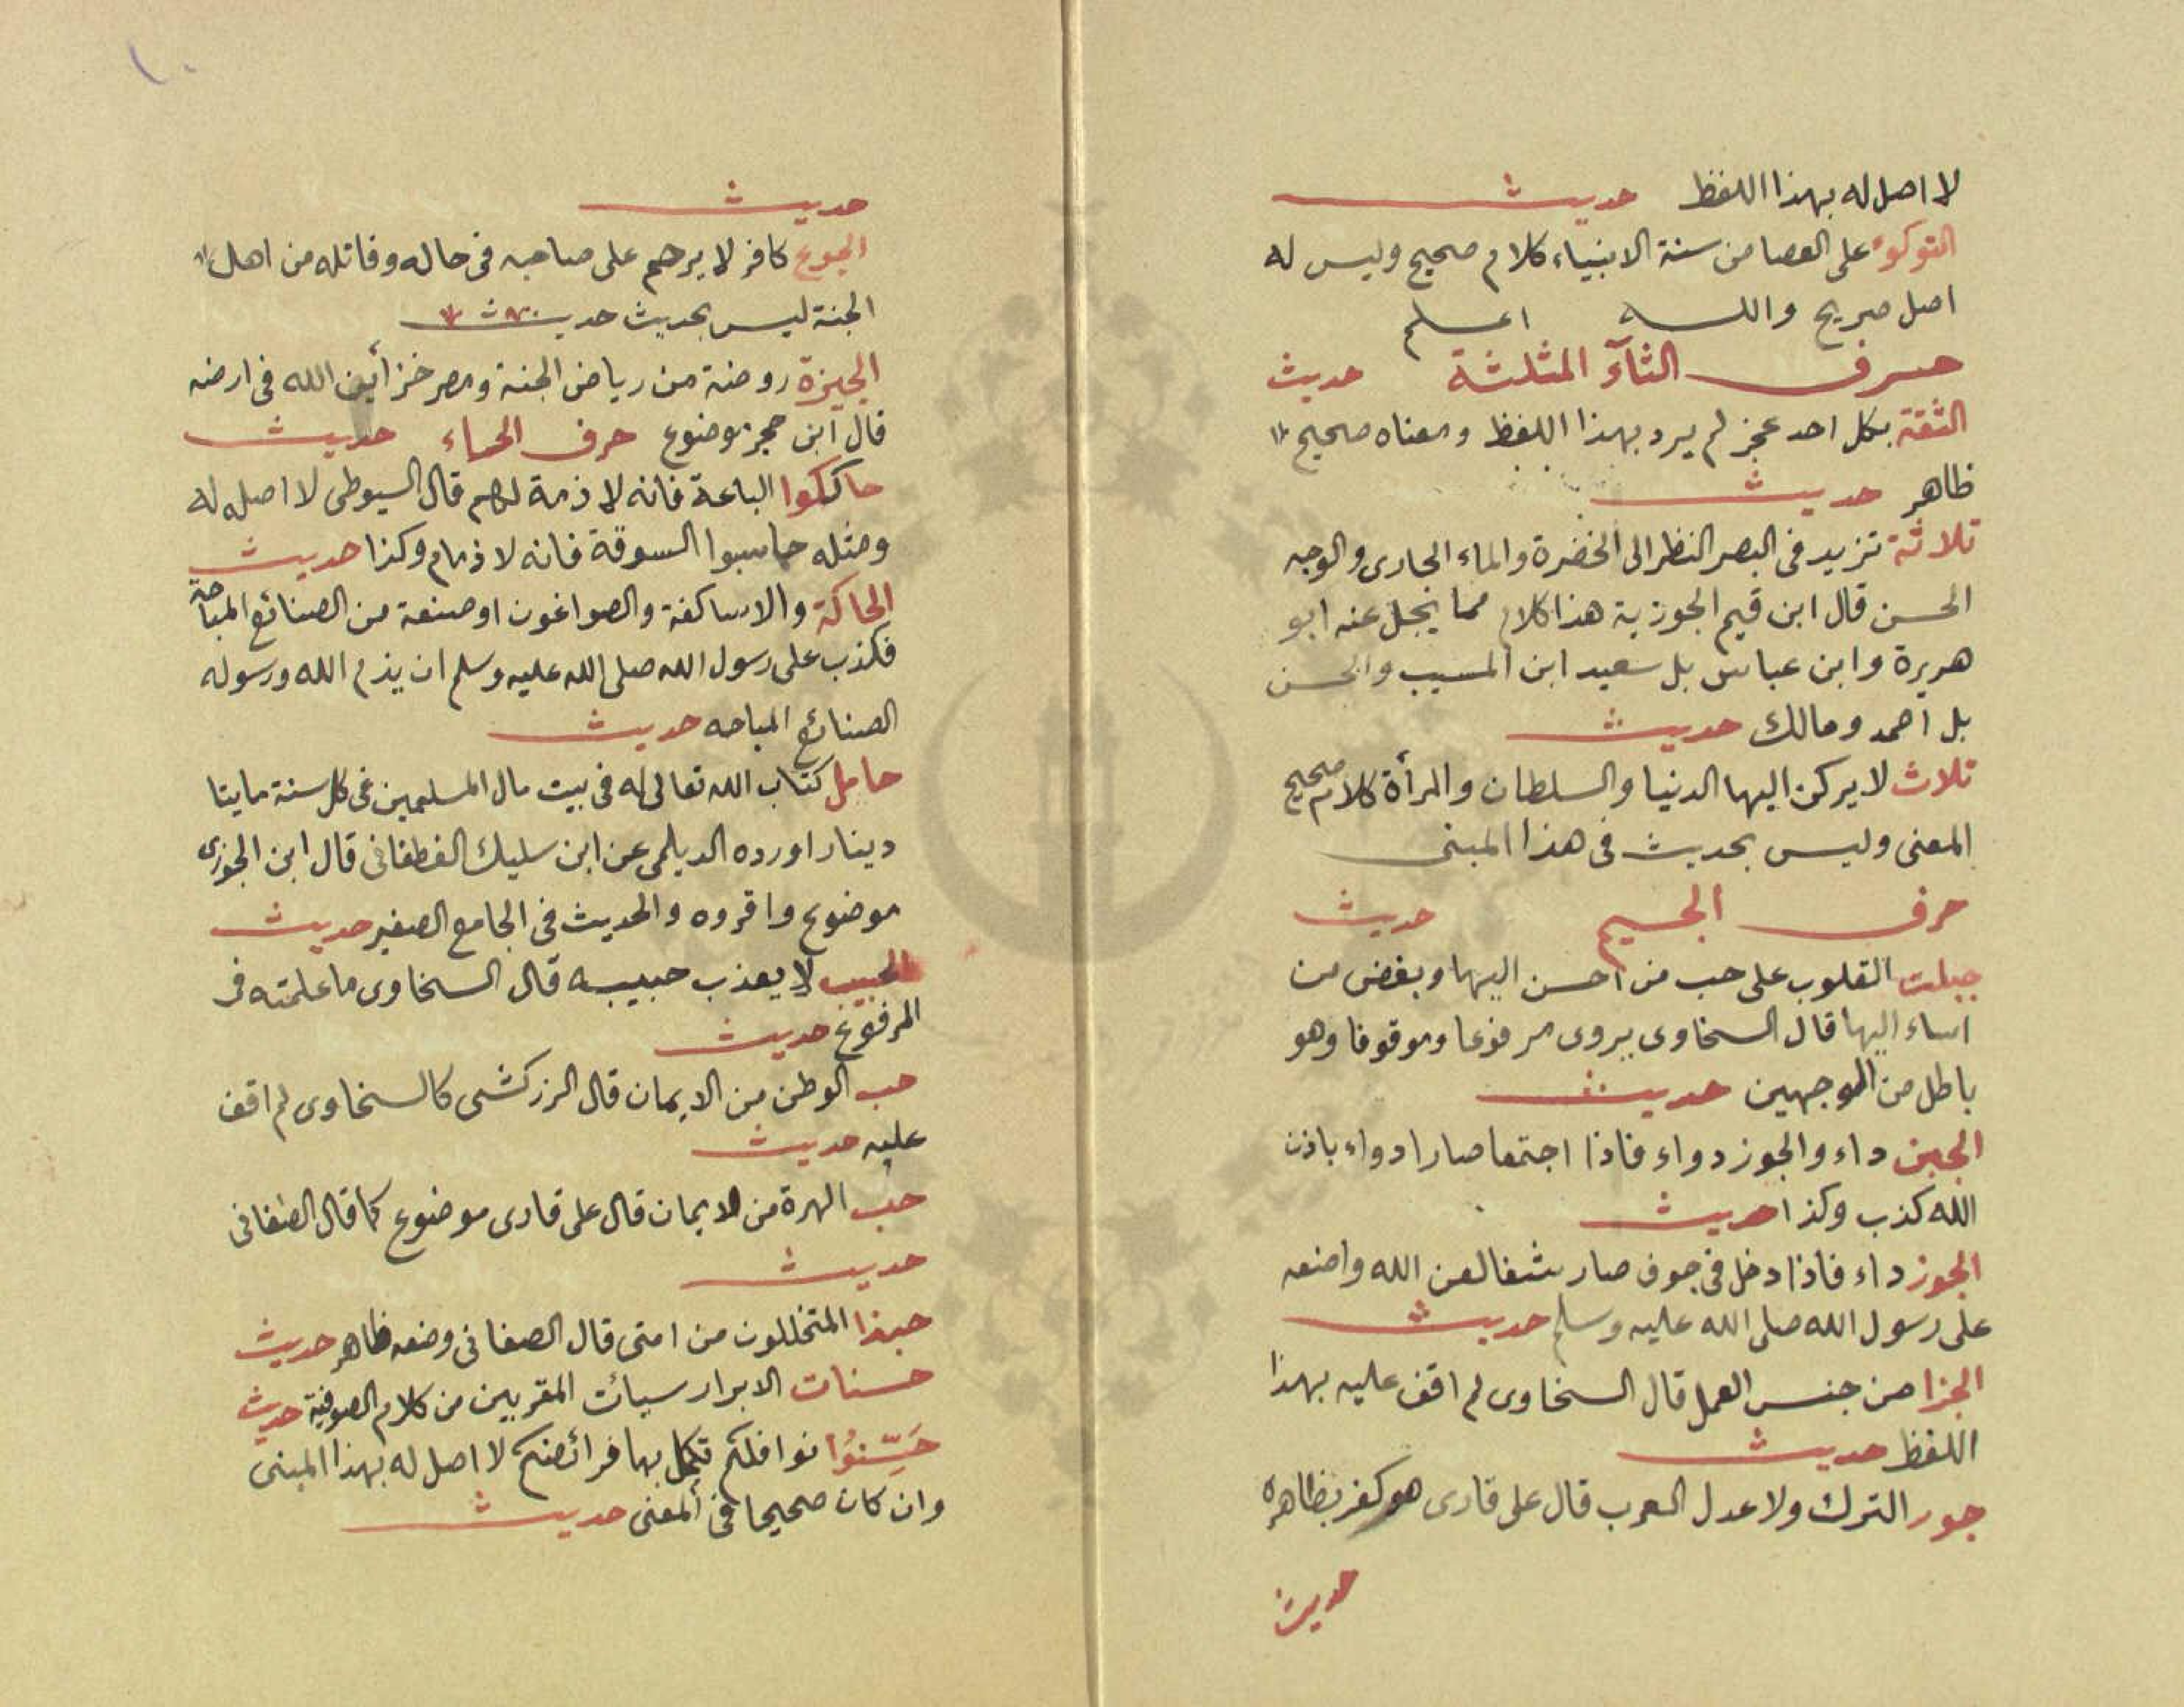 لا اصل له بهذا اللفظ حديث
التوكؤ على العصا من سنة الانبياء كلام صحيح وليس له
اصل صريح والله اعلم
حرف الثآء المثلثة حديث
الثقة بكل احد عجز لم يرد بهذا اللفظ ومعناه صحيح
ظاهر حديث
ثلاثة تزيد فى البصر النظر الى الخضرة والماء الجارى والوجه
الحسن قال ابن قيم الجوزية هذا كلام مما يجل عنه ابو
هريرة وابن عباس بل سعيد ابن المسيب والحسن
بل احمد ومالك حديث
ثلاث لا يركن اليها الدنيا والسلطان والمرأة كلام صحيح
المعنى وليس بحديث فى هذا المبنى
حرف الجيم حديث
جبلت القلوب على حب من احسن اليها وبغض من
اساء اليها قال السخاوى يروى مرفوعا وموقوفا وهو
باطل من الوجهين حديث
الجبن داء والجوز دواء فاذا اجتمعا صارا دواء باذن
الله كذب وكذا حديث
الجوز داء فاذا دخل فى جوف صار شفا لعن الله واضعه
على رسول الله صلى الله عليه وسلم حديث
الجزا من جنس العمل قال السخاوى لم اقف عليه بهذا
اللفظ حديث
جور الترك ولا عدل العرب قال على قارى هو كفر بظاهره
حديث
١٠
حديث
الجوع كافر لا يرحم على صاحبه فى حاله وقاتله من اهل
الجنة ليس بحديث حديث
الجيزة روضة من رياض الجنة ومصر خزأين الله فى ارضه
قال ابن حجر موضوع حرف الحاء حديث
حاككوا الباعة فانه لا ذمة لهم قال السيوطى لا اصل له
ومثله حاسبوا السوقة فانه لا ذمام وكذا حديث
الحاكة والاساكفة والصواغون او صنعة من الصنائع المباحة
فكذب على رسول الله صلى الله عليه وسلم ان يذم الله ورسوله
الصنائع المباحه حديث
حامل كتاب الله تعالى له فى بيت مال المسلمين فى كل سنة مايتا
دينار اورده الديلمى عن ابن سليك الغطفانى قال ابن الجوزى
موضوع واقروه والحديث فى الجامع الصغير حديث
الحبيب لا يعذب حبيبه قال السخاوى ما علمته فى
المرفوع حديث
حب الوطن من الايمان قال الزركشى كالسخاوى لم اقف
عليه حديث
حب الهرة من الايمان قال على قارى موضوع كما قال الصغانى
حديث
حبذا المتخللون من امتى قال الصغانى وضعه ظاهر حديث
حسنات الابرار سيأت المقربين من كلام الصوفية حديث
حَسِّنُوْا نوافلكم تكمل بها فرائضكم لا اصل له بهذا المبنى
وان كان صحيحا فى المعنى حديث